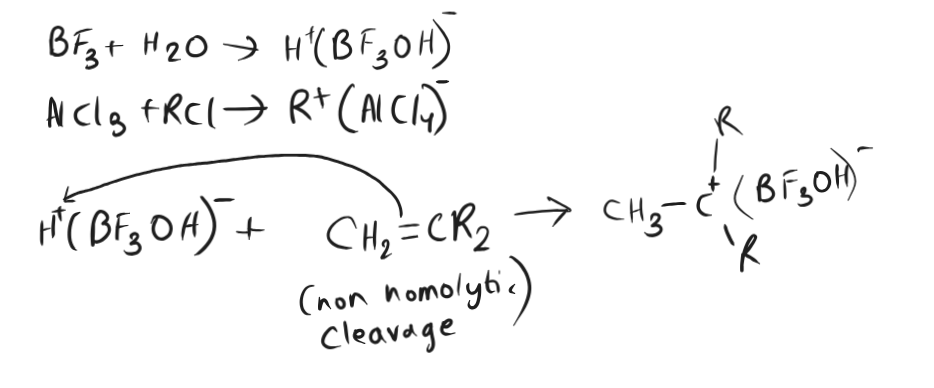 BF₃ + H₂O → H⁺(BF₃OH)⁻
AlCl₃ + RCl → R⁺(AlCl₄)⁻
H⁺(BF₃OH)⁻ + CH₂=CR₂ → CH₃-C⁺(BF₃OH)⁻
R
R
(non homolytic)
cleavage